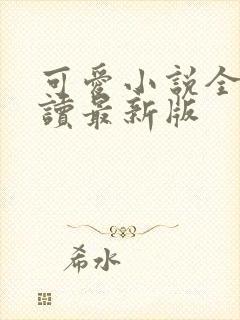 可愛小說全
讀最新版
希水